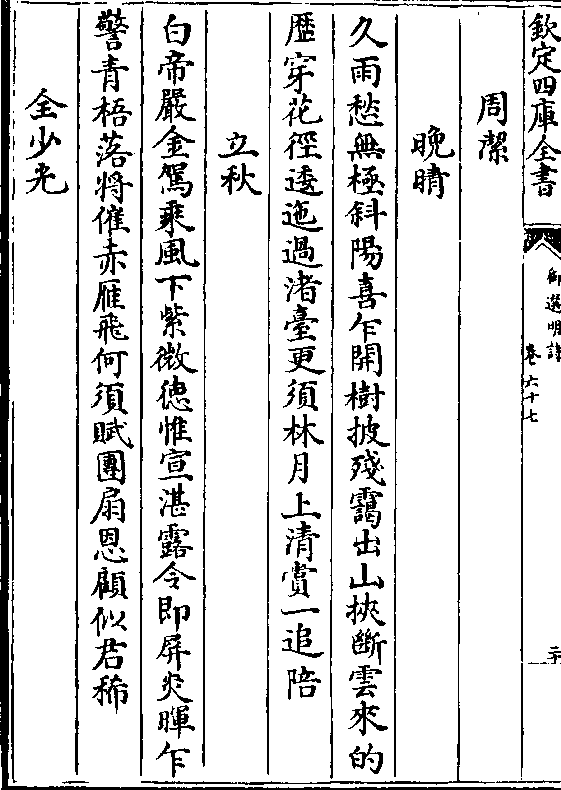 欽定四庫全書
御選明詩
卷六十七
二十
周潔
晚晴
久雨愁無極斜陽喜乍開樹披殘靄出山挾斷雲來的
歴穿花徑逶迤過渚臺更須林月上清賞一追陪
立秋
白帝嚴金駕乘風下紫微徳惟宣湛露令即屏炎暉乍
驚青梧落將催赤雁飛何須賦團扇恩顧似君稀
全少光